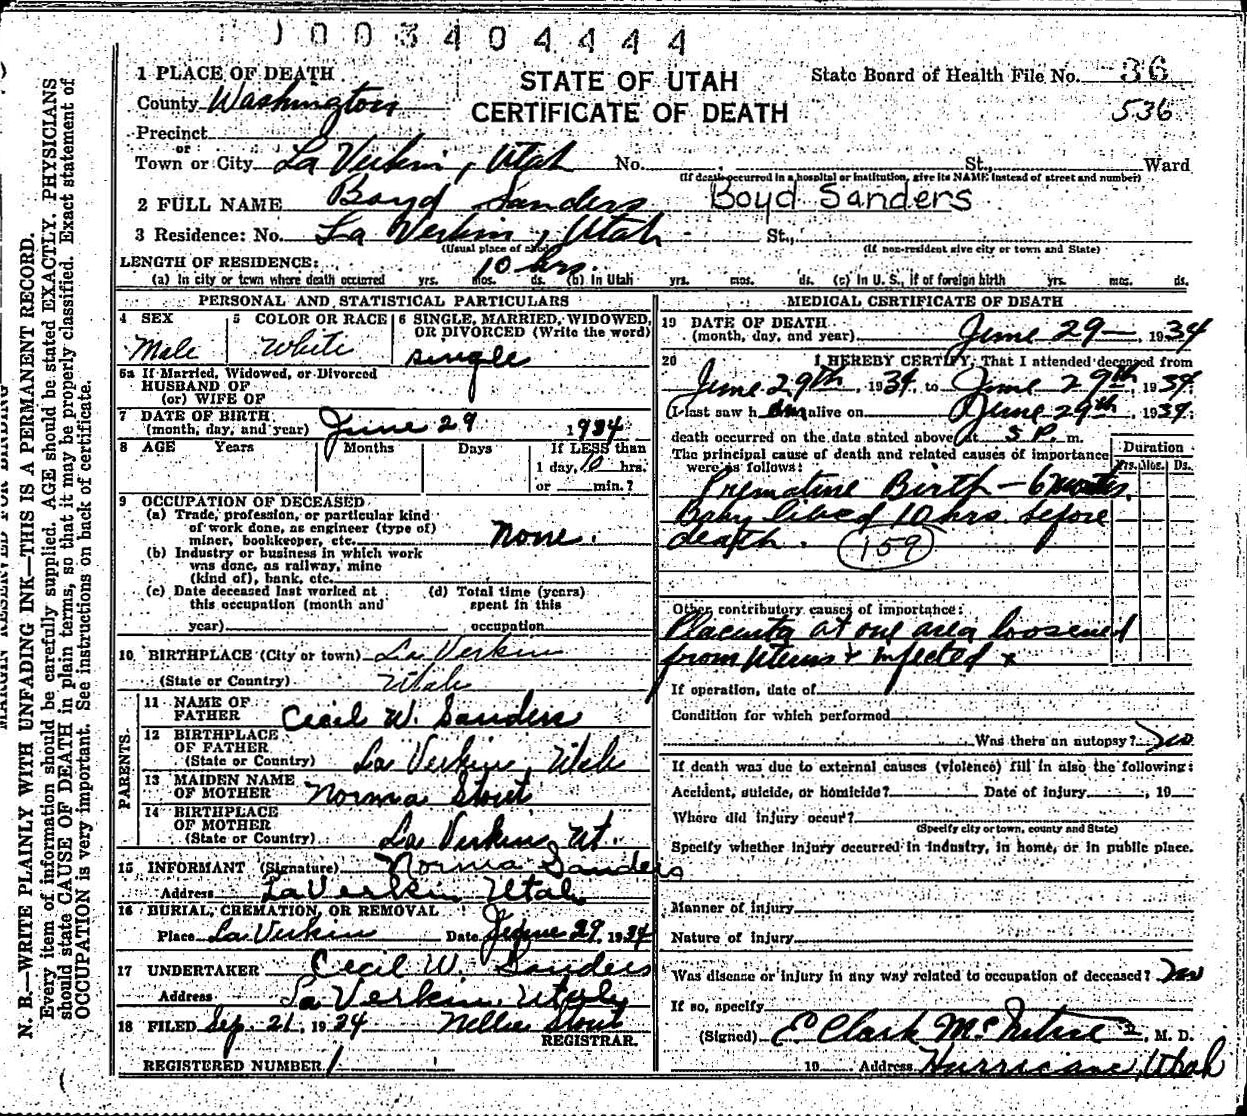 1003404444
1 PLACE OF DEATH
STATE OF UTAH
State Board of Health File No. 36
County Washington
CERTIFICATE OF DEATH
536
Precinct
or
Town or City La Verkin, Utah No. St., Ward
(If death occurred in a hospital or institution, give its NAME instead of street and number)
2 FULL NAME Boyd Sanders Boyd Sanders
3 Residence: No. La Verkin, Utah St.,
(Usual place of abode) (If non-resident give city or town and State)
LENGTH OF RESIDENCE: 10 hrs.
(a) In city or town where death occurred yrs. mos. ds. (b) In Utah yrs. mos. ds. (c) In U. S., if of foreign birth yrs. mos. ds.
PERSONAL AND STATISTICAL PARTICULARS
4 SEX 5 COLOR OR RACE 6 SINGLE, MARRIED, WIDOWED,
OR DIVORCED (Write the word)
Male White single
5a If Married, Widowed, or Divorced
HUSBAND OF
(or) WIFE OF
7 DATE OF BIRTH
(month, day, and year) June 29 1934
8 AGE Years Months Days If LESS than
1 day, 10 hrs.
or min.?
9 OCCUPATION OF DECEASED
(a) Trade, profession, or particular kind
of work done, as engineer (type of)
miner, bookkeeper, etc. None.
(b) Industry or business in which work
was done, as railway, mine
(kind of), bank, etc.
(c) Date deceased last worked at (d) Total time (years)
this occupation (month and spent in this
year) occupation
10 BIRTHPLACE (City or town) La Verkin
(State or Country) Utah
PARENTS.
11 NAME OF
FATHER Cecil W. Sanders
12 BIRTHPLACE
OF FATHER
(State or Country) La Verkin, Utah
13 MAIDEN NAME
OF MOTHER Norma Stout
14 BIRTHPLACE
OF MOTHER
(State or Country) La Verkin Ut.
15 INFORMANT (Signature) Norma Sanders
Address LaVerkin Utah
16 BURIAL, CREMATION, OR REMOVAL
Place La Verkin Date June 29, 1934
17 UNDERTAKER Cecil W. Sanders
Address La Verkin, Utah
18 FILED Sep. 21, 1934 Nellie Stout
REGISTRAR.
REGISTERED NUMBER 1
MEDICAL CERTIFICATE OF DEATH
19 DATE OF DEATH
(month, day, and year) June 29 — 1934
20 I HEREBY CERTIFY, That I attended deceased from
June 29th, 1934 to June 29th, 1934
(I last saw h im alive on June 29th, 1934.
death occurred on the date stated above at 5 P. m.
The principal cause of death and related causes of importance
were as follows:
Duration
Yrs. Mos. Ds.
Premature Birth — 6 months.
Baby lived 10 hrs. before
death. 159
Other contributory causes of importance:
Placenta at one area loosened
from uterus & infected
If operation, date of
Condition for which performed
Was there an autopsy? No
If death was due to external causes (violence) fill in also the following:
Accident, suicide, or homicide? Date of injury , 19
Where did injury occur?
(Specify city or town, county and State)
Specify whether injury occurred in industry, in home, or in public place.
Manner of injury
Nature of injury
Was disease or injury in any way related to occupation of deceased? No
If so, specify
(Signed) E Clark McIntire, M. D.
19 Address Hurricane, Utah
N. B.—WRITE PLAINLY WITH UNFADING INK—THIS IS A PERMANENT RECORD.
Every item of information should be carefully supplied. AGE should be stated EXACTLY. PHYSICIANS
should state CAUSE OF DEATH in plain terms, so that it may be properly classified. Exact statement of
OCCUPATION is very important. See instructions on back of certificate.
MARGIN RESERVED FOR BINDING